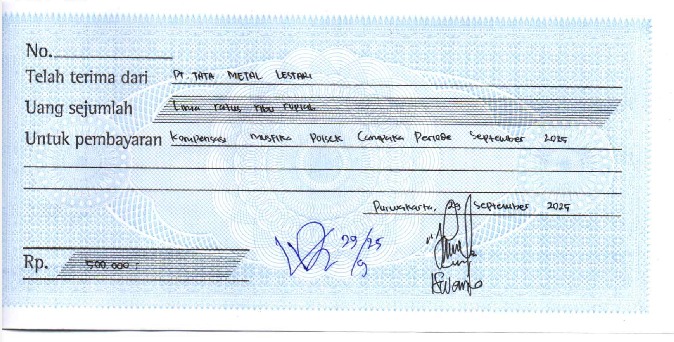 No.
Telah terima dari PT. TATA METAL LESTARI
Uang sejumlah Lima ratus ribu rupiah
Untuk pembayaran Kompensasi Muspika Polsek Campaka Periode September 2025
Purwakarta, 29 September 2025
29/25
/9
Rp. 500.000